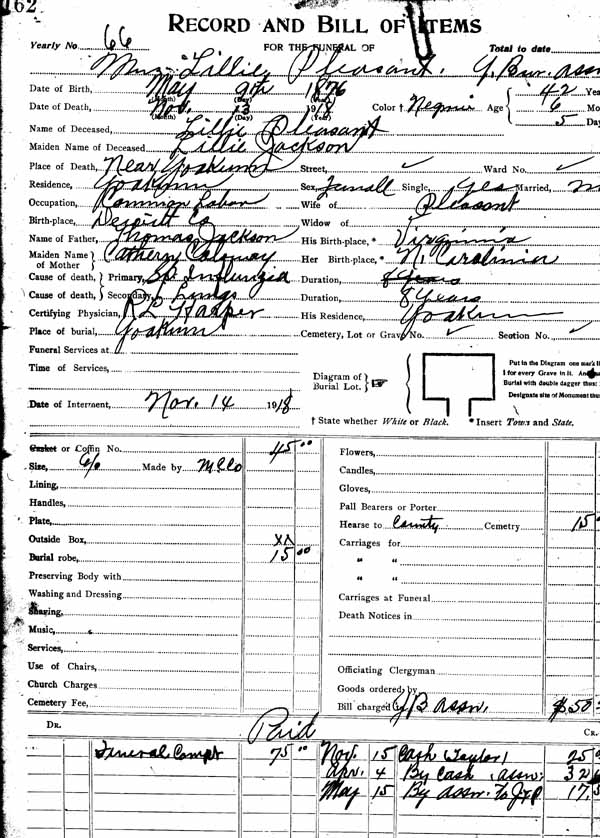 162
RECORD AND BILL OF ITEMS
Yearly No 66 FOR THE FUNERAL OF Total to date
Mrs Lillie Pleasant. Y. Bur. assn
Date of Birth, May 9th 1876 42 Yea
(Month) (Day) (Year)
Date of Death, Nov. 13 1918 Color † Negro Age 6 Mo
(Month) (Day) (Year) 5 Day
Name of Deceased, Lillie Pleasant
Maiden Name of Deceased Lillie Jackson
Place of Death, Near Yoakum Street, ✓ Ward No. ✓
Residence, Yoakum Sex, Single, yes Married,
Occupation, Common Labor Wife of Pleasant
Birth-place, Dewitt Co Widow of
Name of Father, Thomas Jackson His Birth-place,* Virginia
Maiden Name of Mother Cathern Her Birth-place,* N. Carolinia
Cause of death, Primary, Sp. Influnzia Duration, 8 Years
Cause of death, Secondary, Lungs Duration, 8 Years
Certifying Physician, His Residence, Yoakum
Place of burial, Yoakum Cemetery, Lot or Grave No. ✓ Section No. ✓
Funeral Services at
Time of Services,
Diagram of Burial Lot. ☞
Put in the Diagram one mark
1 for every Grave in it.
Burial with double dagger thus:
Designate site of Monument thus
Date of Interment, Nov. 14 1918
† State whether White or Black. * Insert Town and State.
Casket or Coffin No. 45 00
Size, 6/0 Made by M Co
Lining,
Handles,
Plate,
Outside Box, XX
Burial robe, 15 00
Preserving Body with
Washing and Dressing
Shaving,
Music,
Services,
Use of Chairs,
Church Charges
Cemetery Fee,
Flowers,
Candles,
Gloves,
Pall Bearers or Porter
Hearse to County Cemetry 15
Carriages for
" "
" "
Carriages at Funeral
Death Notices in
Officiating Clergyman
Goods ordered by
Bill charged Y B Assn. $50
DR. Paid CR.
Funeral Compt 75 00 Nov. 15 Cash Taylor 25
Apr. 4 By Cash assn. 32
May 15 By assn. To J&P 17,